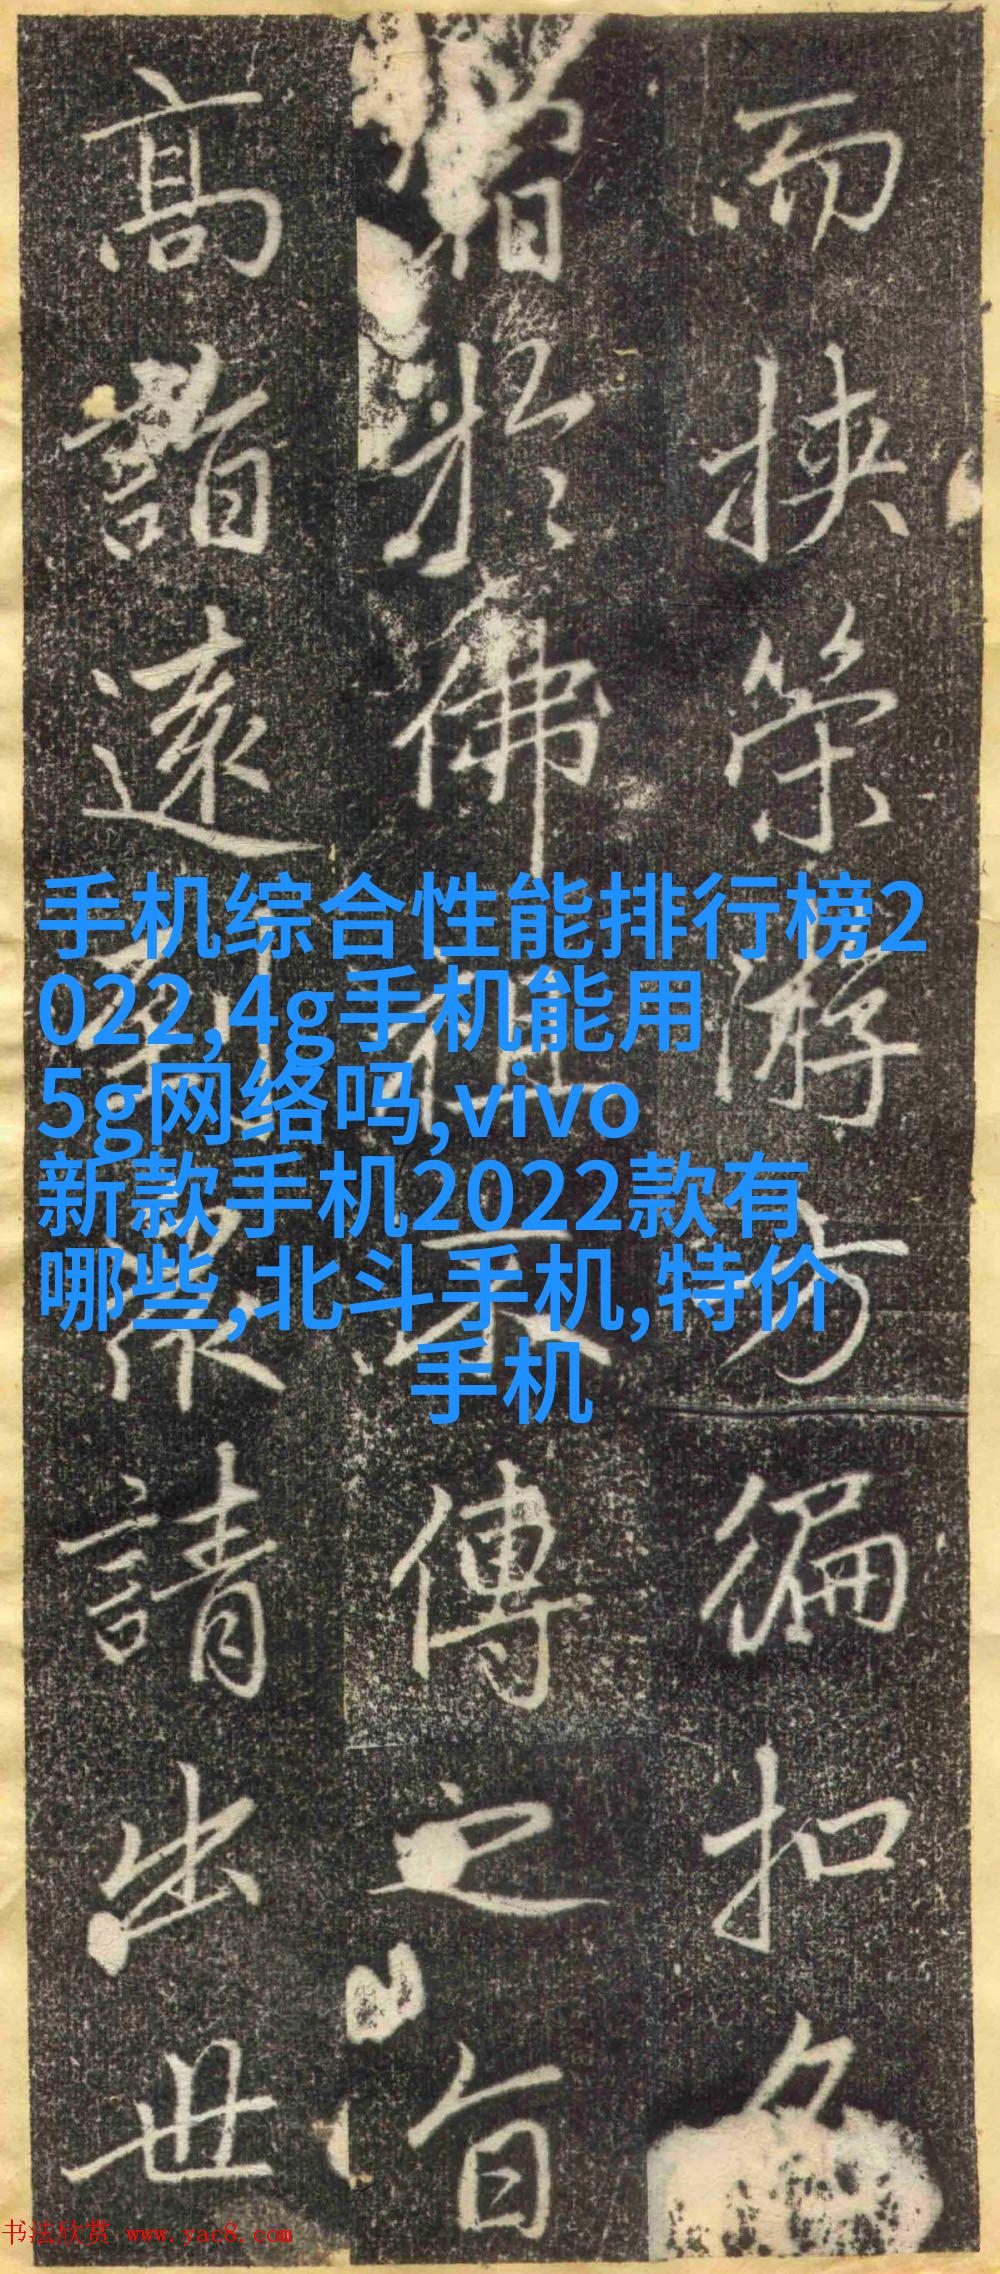 而挾策游方徧扣
於佛祖不傳之旨
高詣遠衆請出世
手机综合性能排行榜2
022,4g手机能用
5g网络吗,vivo
新款手机2022款有
哪些,北斗手机,特价
手机
书法欣赏 www.yac8.com